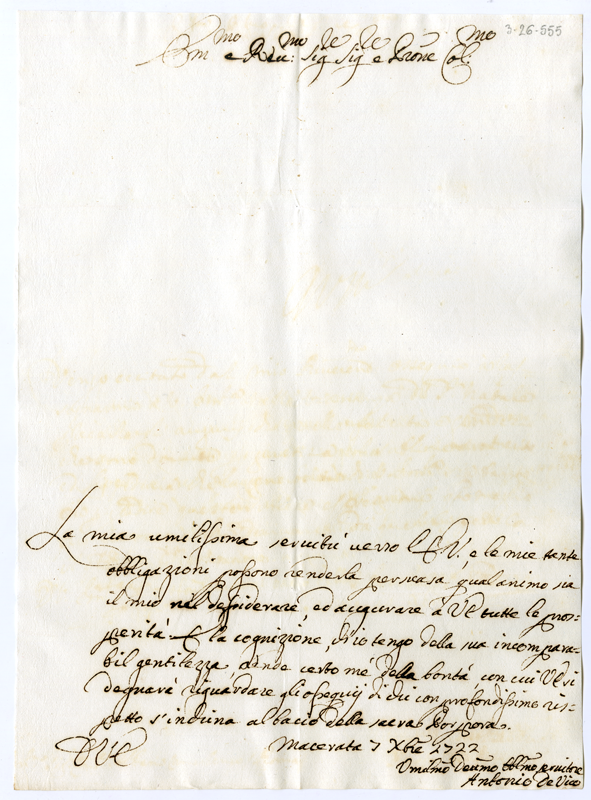 3-26-555
Em.mo e Rev.mo Sig.re Sig.re e Prone Col.mo
La mia umilissima servitù verso l'E.V. e le mie tante
obbligazioni possono renderla persuasa, qual animo sia
il mio nel desiderare, ed augurare à VE tutte le pros=
perità. E la cognizione, ch'io tengo della sua incompara=
bil gentilezza, rende certo me della bontà, con cui VE si
degnarà riguardare gli ossequij di chi con profondissimo ris=
petto s'inchina al bacio della sacra Porpora.
DVE
Macerata 7 Xbre 1722
Umilmo Devmo Obbmo servitore
Antonio de Vico